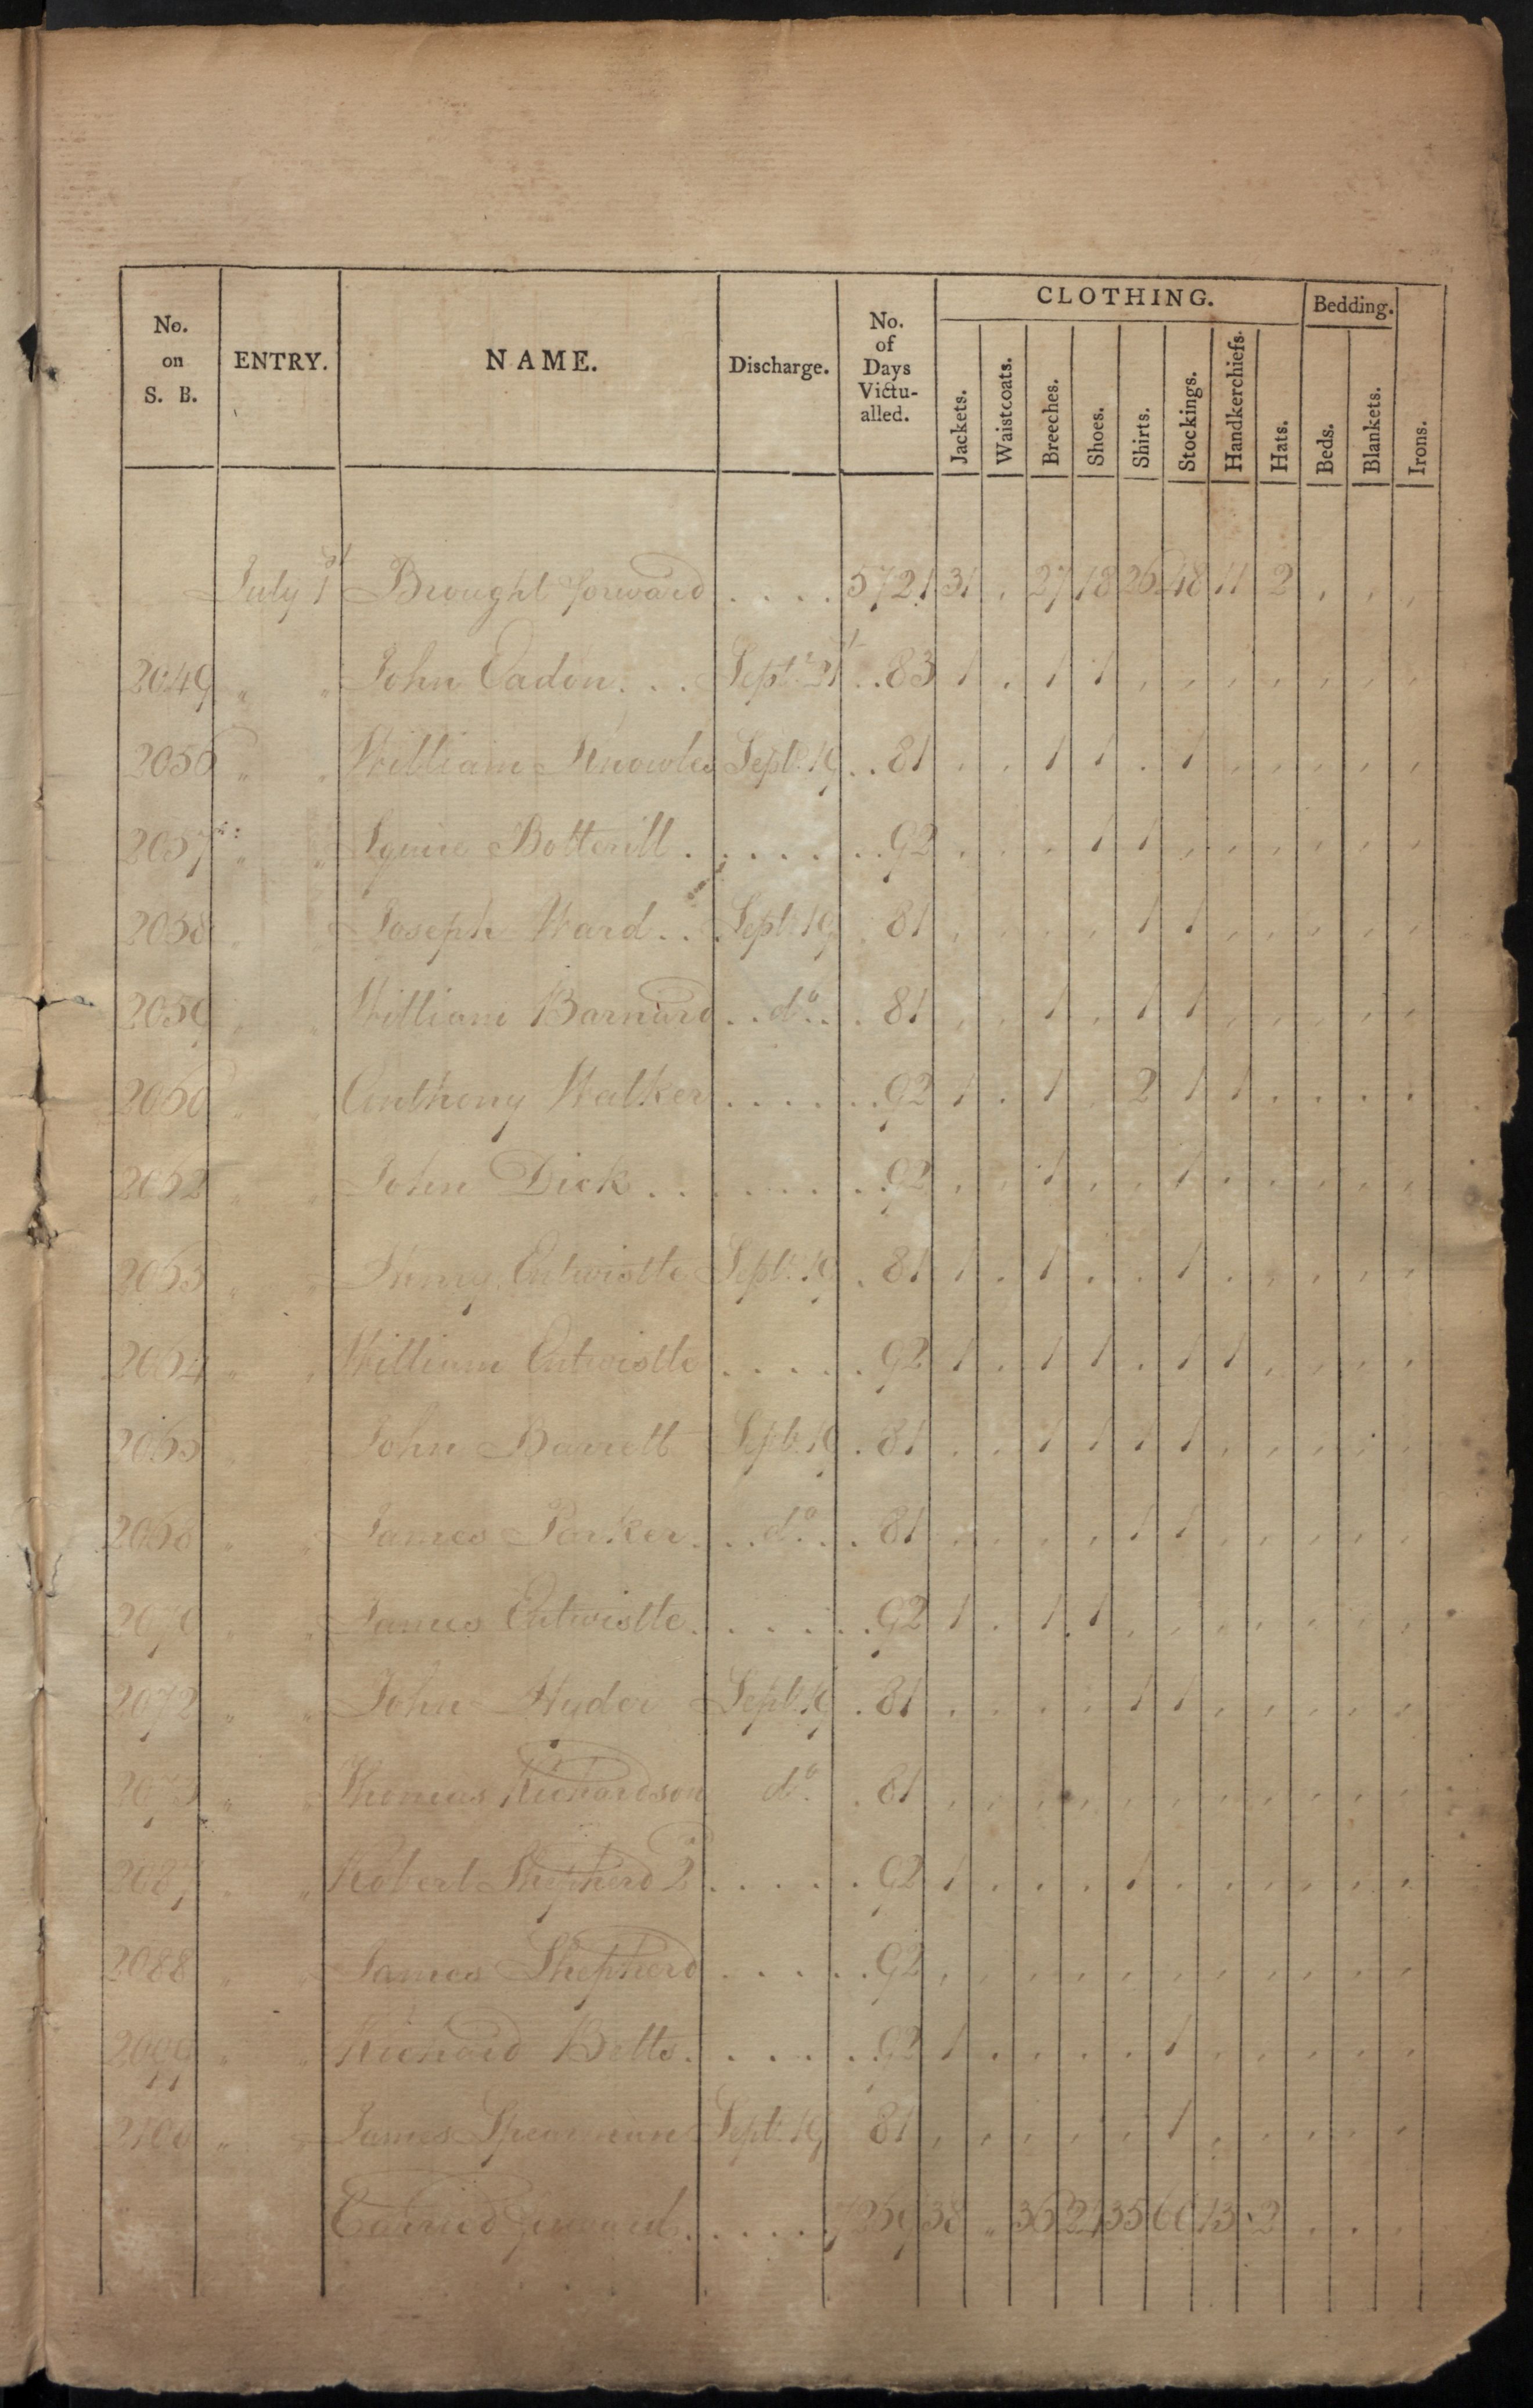 No. on S. B. | ENTRY. | NAME. | Discharge. | No. of Days Victu-alled. | CLOTHING. | Bedding. | Irons.
Jackets. | Waistcoats. | Breeches. | Shoes. | Shirts. | Stockings. | Handkerchiefs. | Hats. | Beds. | Blankets.
July 1st Brought forward .... 5721 31 . 27 18 26 48 11 2 , , ,
2049 " " John Eadon ... Septr. 21st .. 83 1 . 1 1 , , , , , , ,
2056 " " William Knowles Septr. 19 .. 81 . . 1 1 . 1 , , , , ,
2057 " " Squire Botterill . . . . . . . 92 . . . 1 1 , , , , , ,
2058 " " Joseph Ward .. Septr. 19 . 81 , , , , 1 1 , , , , ,
2059 " " William Barnard .. do. .. 81 , , 1 , 1 1 , , , , ,
2060 " " Anthony Walker . . . . . . 92 1 . 1 . 2 1 1 . . . .
2062 " " John Dick . . . . . . . 92 , , 1 , , 1 , , , , ,
" " Entwistle Septr. 19 . 81 1 . 1 . . 1 . , , , ,
2064 " " William Entwistle . . . . . 92 1 . 1 1 . 1 1 , , , ,
2065 " " John Barrett Septr. 19 . 81 . . 1 1 1 1 , , , , ,
" " James Parker . . do. . . 81 , , , , 1 1 , , , , ,
2070 " " James Entwistle . . . . . . 92 1 . 1 1 , , , , , , ,
2072 " " John Hyder Septr. 19 . 81 . . . . 1 1 , , , , ,
2073 " " Thomas Richardson do. . 81 , , , , , , , , , , ,
2087 " " Robert Shepherd 2 . . . . . 92 1 . . . 1 . , , , , ,
2088 " " James Shepherd . . . . . 92 , , , , , , , , , , ,
2099 " " Richard Betts . . . . . . 92 1 . . . . 1 , , , , ,
2100 " " James Spearman Septr. 19 81 , , , , , 1 , , , , ,
Carried forward . . . . . 7259 38 " 36 35 60 13 2 . . .